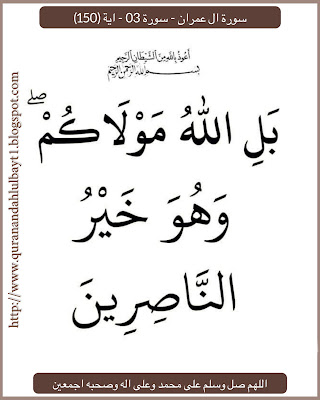 سورة ال عمران - سورة 03 - اية (150)
أعوذ بالله من الشيطان الرجيم
بسم الله الرحمن الرحيم
بَلِ اللهُ مَوْلَاكُمْ ۖ
وَهُوَ خَيْرُ
النَّاصِرِينَ
http://www.quranandahlulbayt1.blogspot.com
اللهم صل وسلم على محمد وعلى اله وصحبه اجمعين